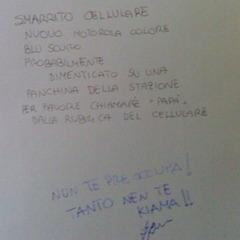 SMARRITO CELLULARE
NUOVO MOTOROLA COLORE
BLU SCURO
PROBABILMENTE
DIMENTICATO SU UNA
PANCHINA DELLA STAZIONE
PER FAVORE CHIAMARE "PAPA'"
DALLA RUBRICA DEL CELLULARE
NON TE PREOCCUPA!
TANTO NEN TE
KIAMA!!